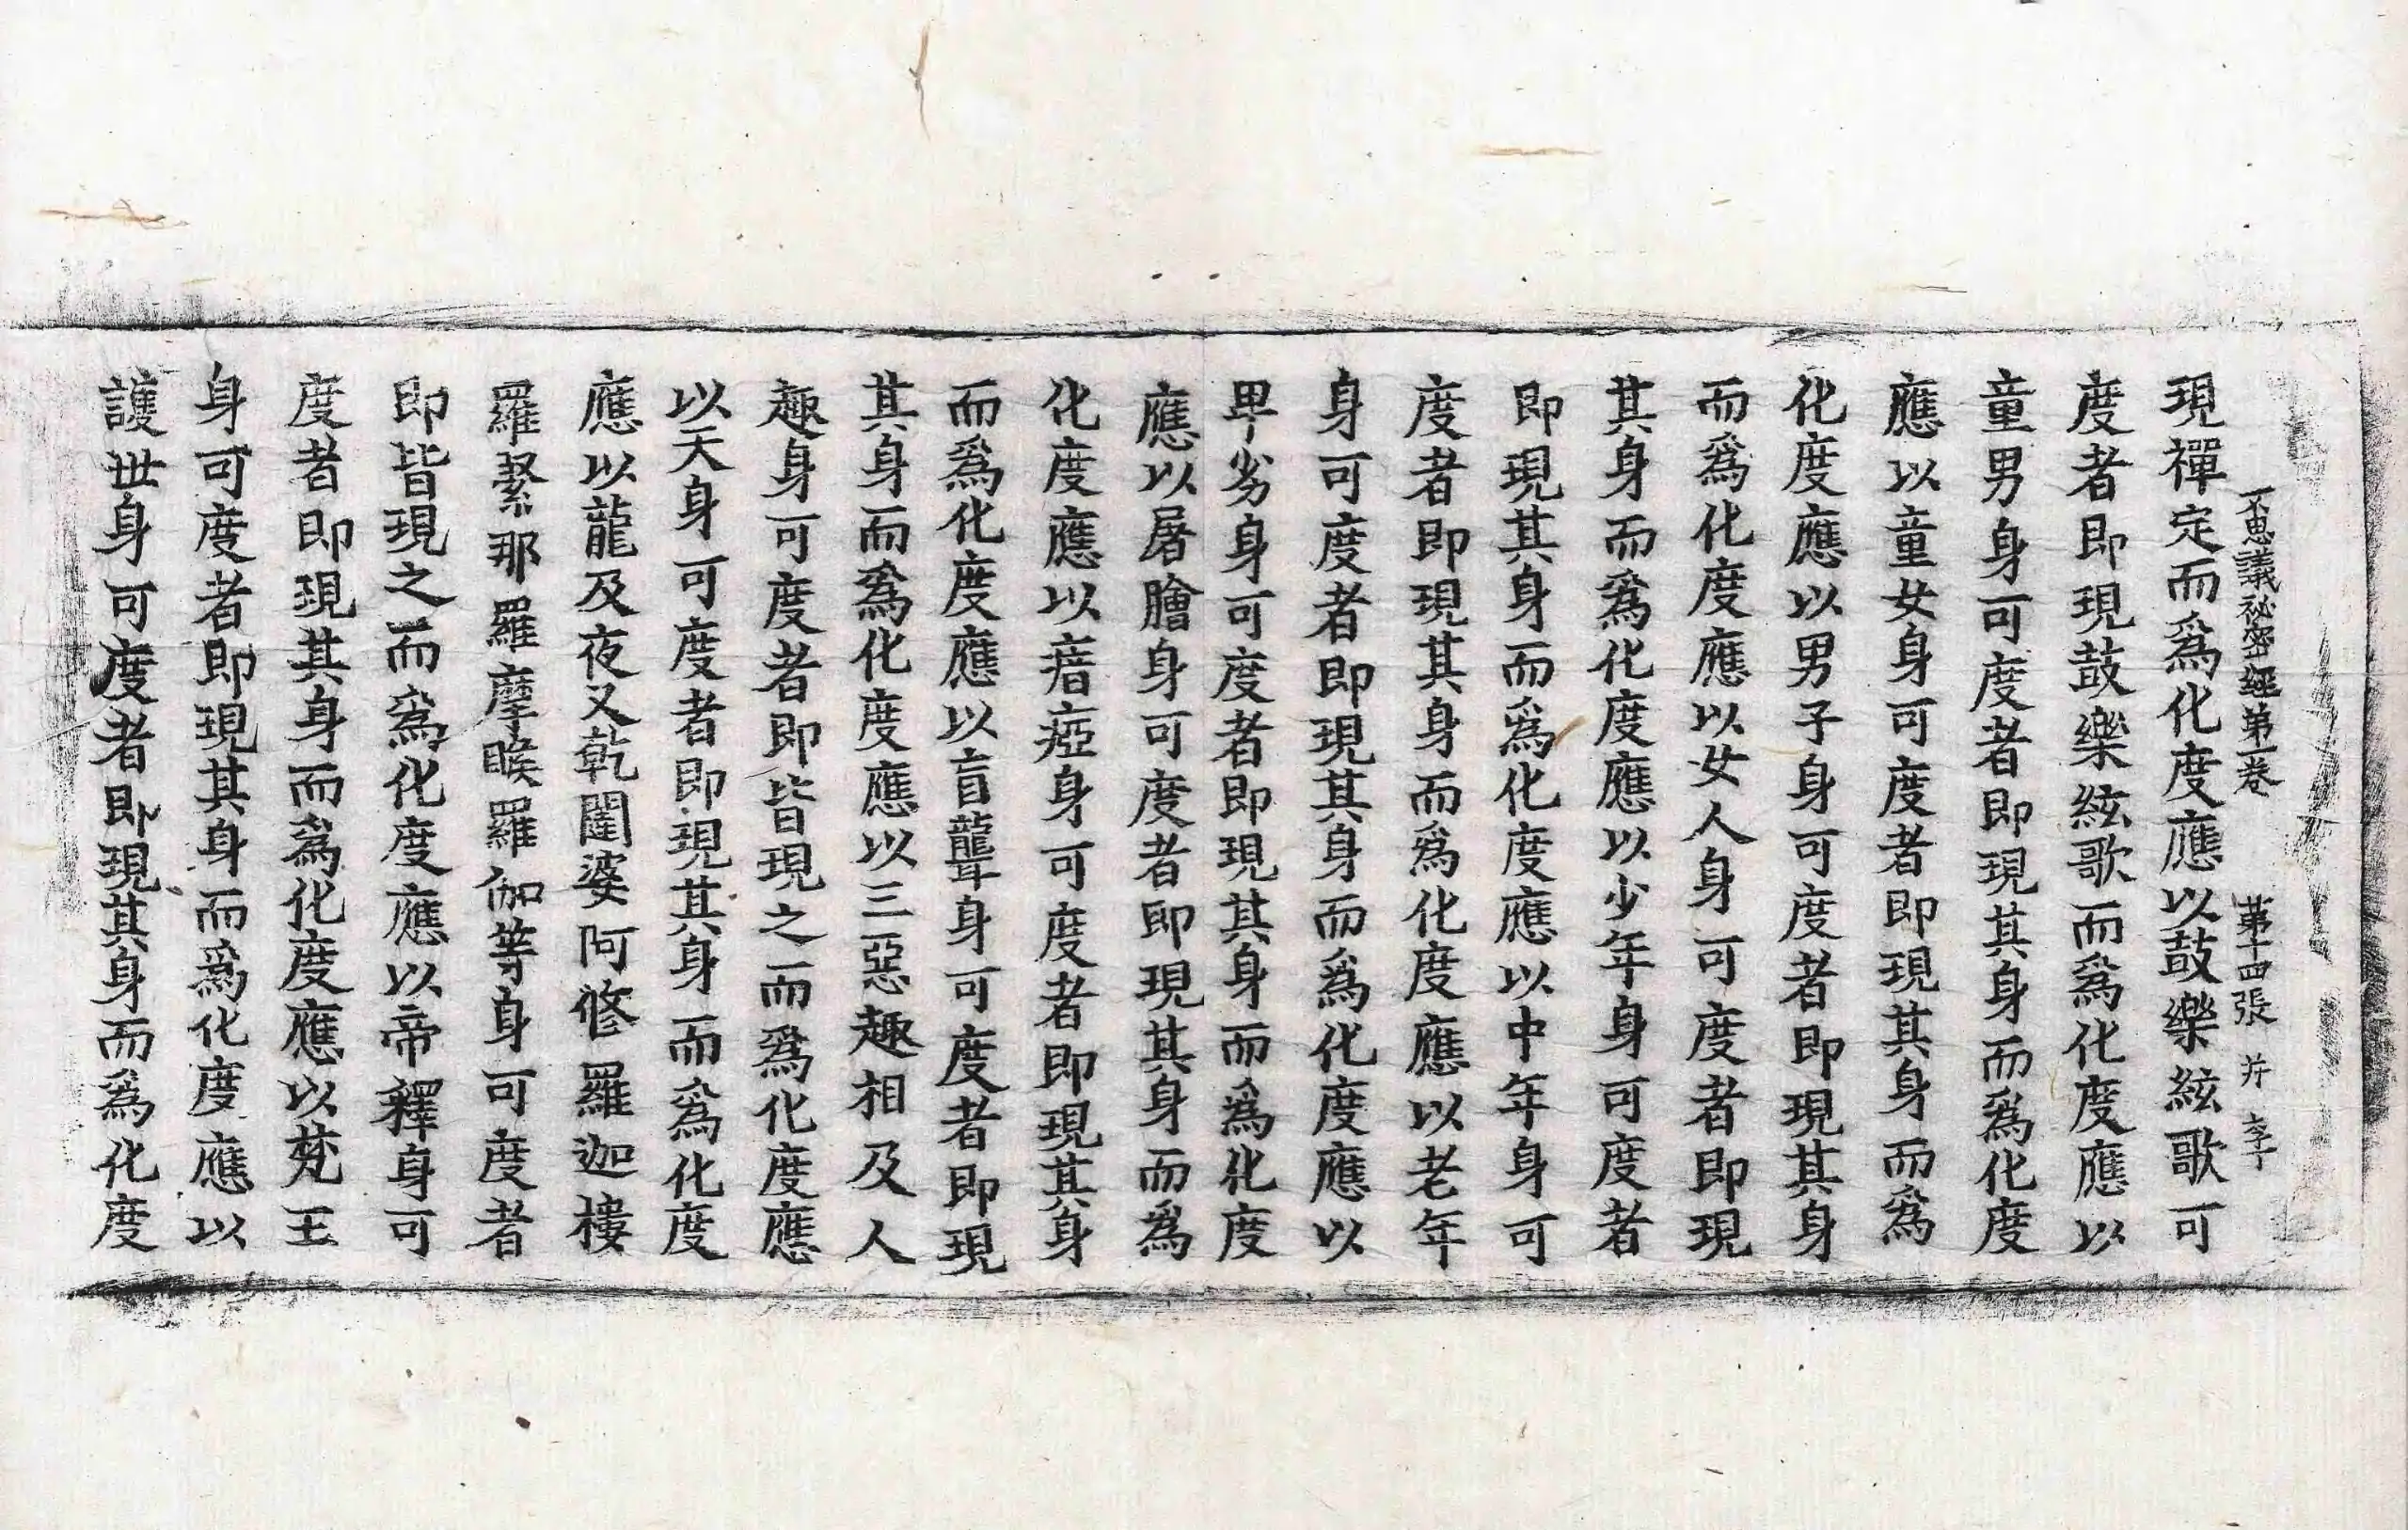 不思議祕密經第一卷 第十四張 㳉 李
現禪定而爲化度應以鼓樂絃歌可
度者即現鼓樂絃歌而爲化度應以
童男身可度者即現其身而爲化度
應以童女身可度者即現其身而爲
化度應以男子身可度者即現其身
而爲化度應以女人身可度者即現
其身而爲化度應以少年身可度者
即現其身而爲化度應以中年身可
度者即現其身而爲化度應以老年
身可度者即現其身而爲化度應以
卑劣身可度者即現其身而爲化度
應以屠膾身可度者即現其身而爲
化度應以瘖瘂身可度者即現其身
而爲化度應以盲聾身可度者即現
其身而爲化度應以三惡趣相及人
趣身可度者即皆現之而爲化度應
以天身可度者即現其身而爲化度
應以龍及夜叉乾闥婆阿修羅迦樓
羅緊那羅摩睺羅伽等身可度者
即皆現之而爲化度應以帝釋身可
度者即現其身而爲化度應以梵王
身可度者即現其身而爲化度應以
護世身可度者即現其身而爲化度